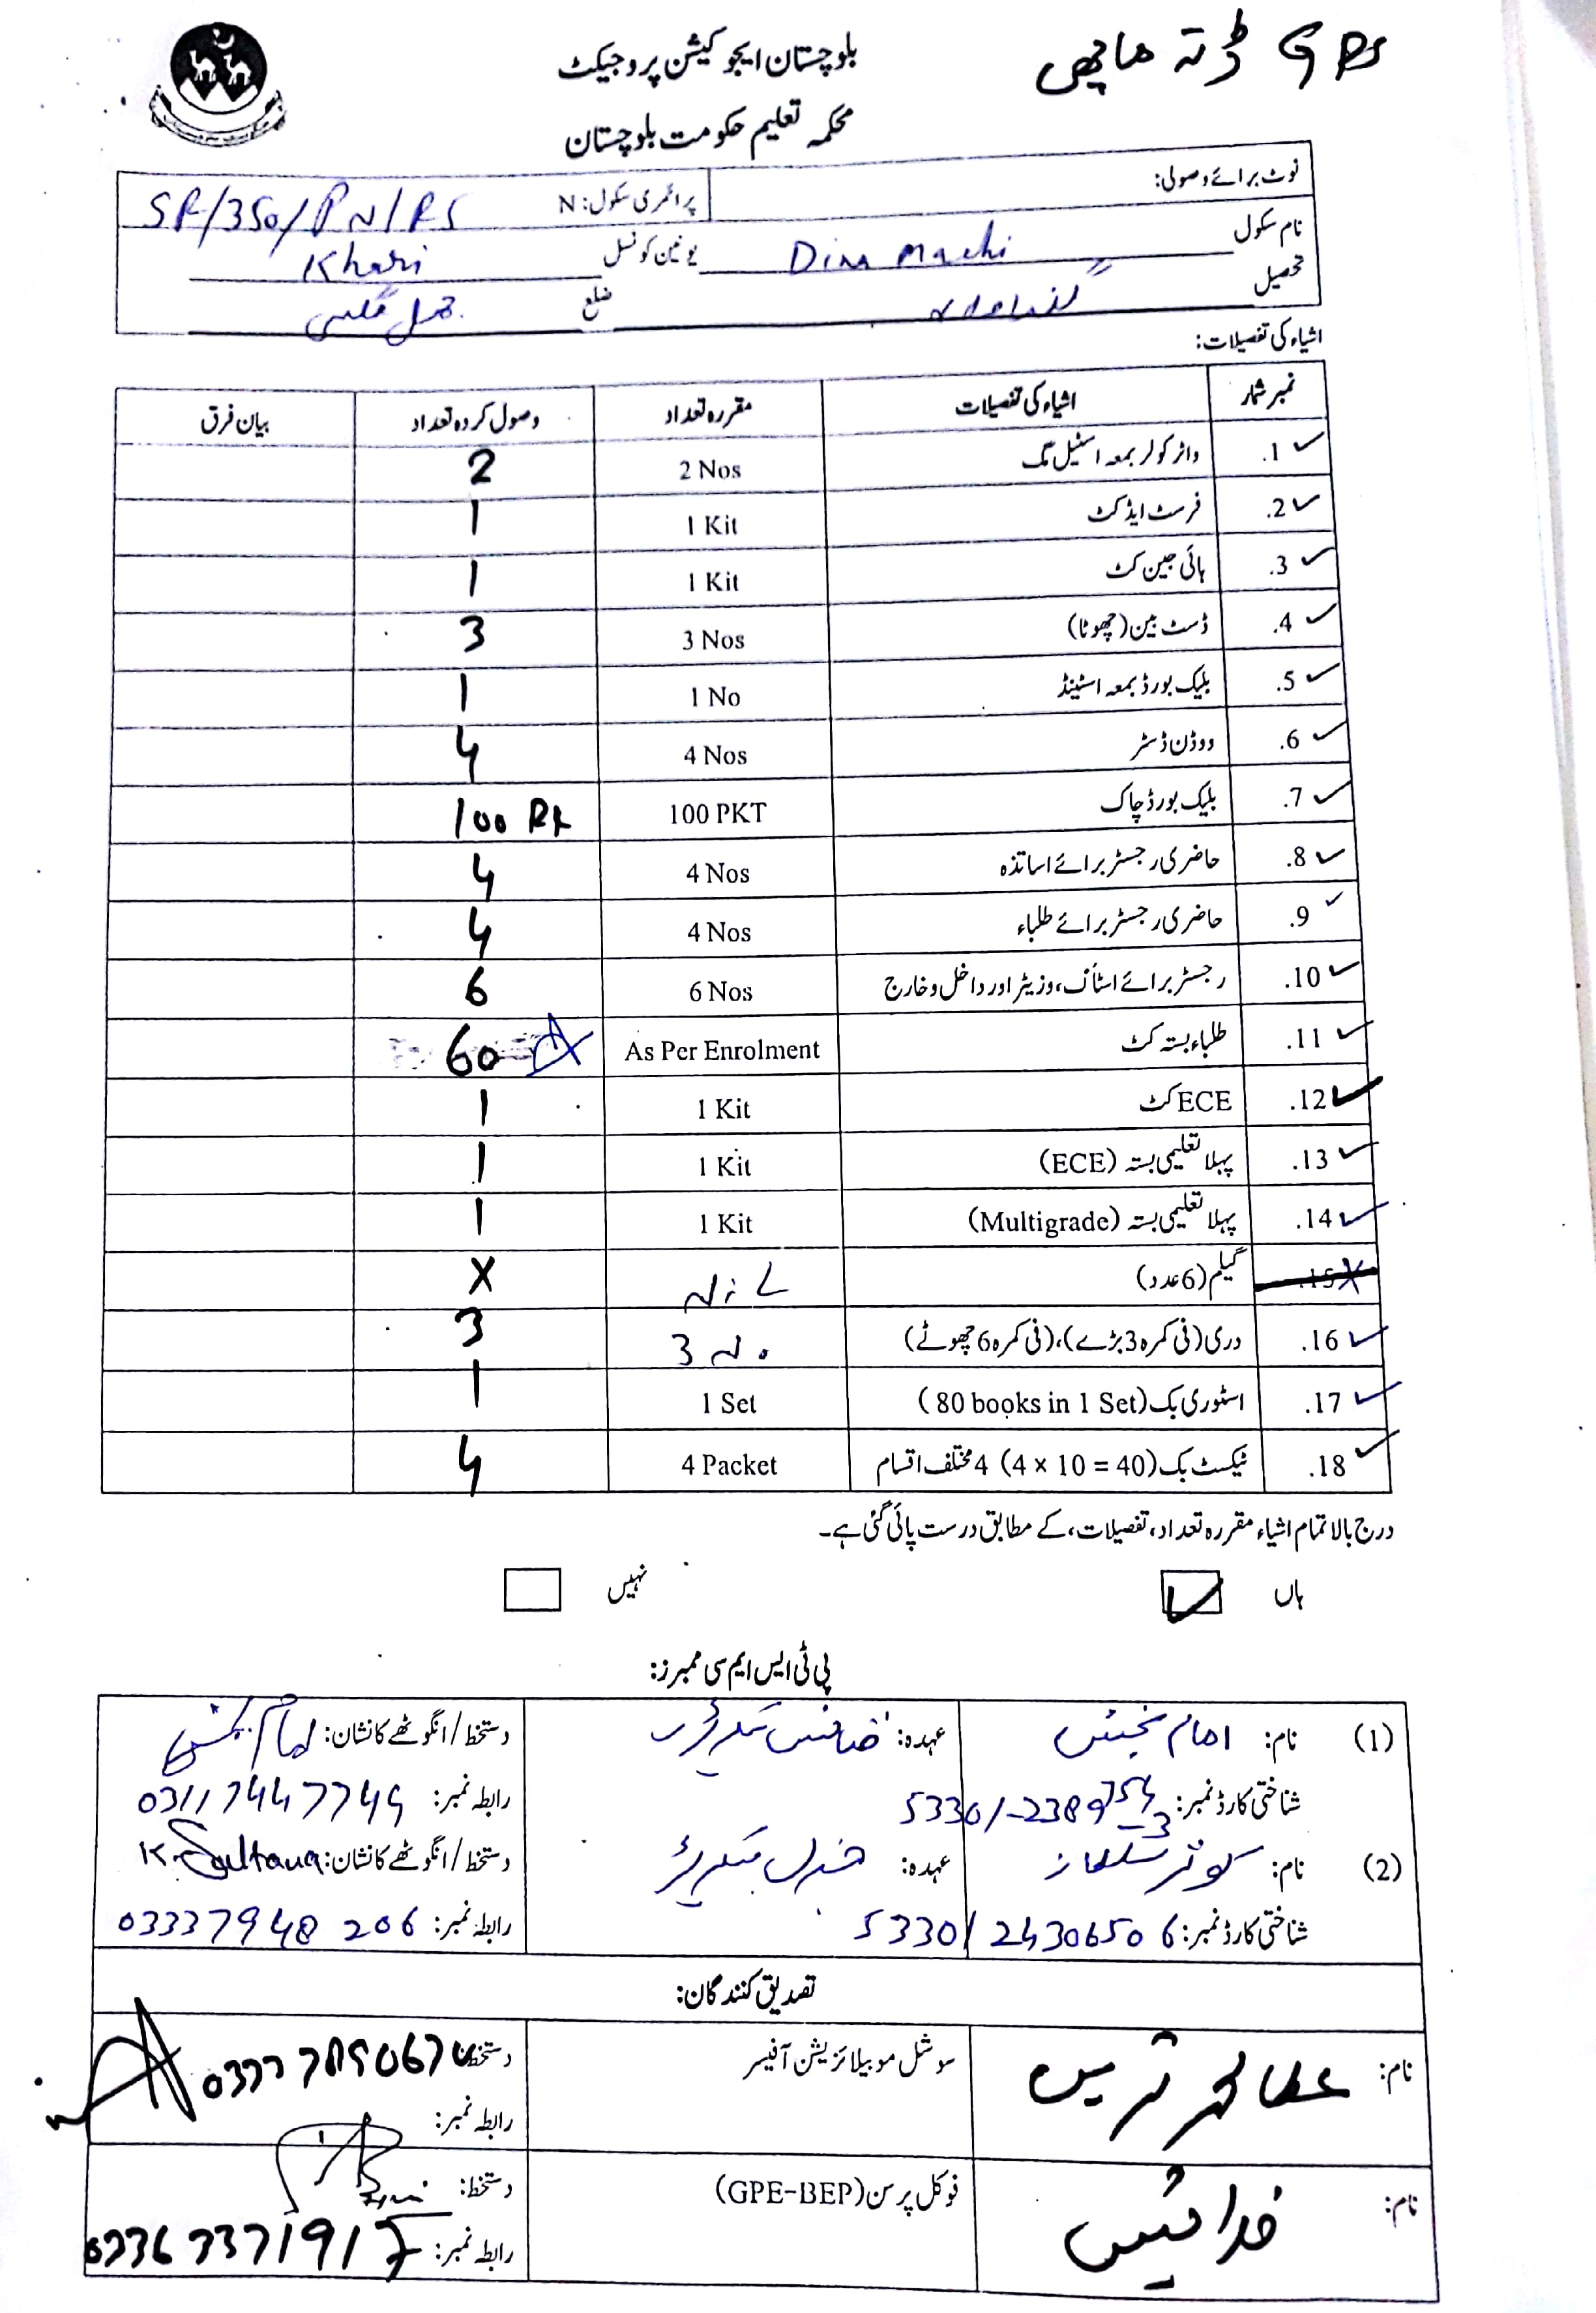 GPS ڈتہ ماچھی
بلوچستان ایجوکیشن پروجیکٹ
محکمہ تعلیم حکومت بلوچستان
نوٹ برائے وصولی: پرائمری سکول: N SR/350/PN/PS
نام سکول Dina Machi یونین کونسل Khari
تحصیل گنداواہ ضلع جھل مگسی
اشیاء کی تفصیلات:
نمبر شمار اشیاء کی تفصیلات مقررہ تعداد وصول کردہ تعداد بیان فرق
1. واٹر کولر بمعہ اسٹیل مگ 2 Nos 2
2. فرسٹ ایڈ کٹ 1 Kit 1
3. ہائی جین کٹ 1 Kit 1
4. ڈسٹ بین (چھوٹا) 3 Nos 3
5. بلیک بورڈ بمعہ اسٹینڈ 1 No 1
6. ووڈن ڈسٹر 4 Nos 4
7. بلیک بورڈ چاک 100 PKT 100 Pk
8. حاضری رجسٹر برائے اساتذہ 4 Nos 4
9. حاضری رجسٹر برائے طلباء 4 Nos 4
10. رجسٹر برائے اسٹاف، وزیٹر اور داخل و خارج 6 Nos 6
11. طلباء بستہ کٹ As Per Enrolment 60
12. ECE کٹ 1 Kit 1
13. پہلا تعلیمی بستہ (ECE) 1 Kit 1
14. پہلا تعلیمی بستہ (Multigrade) 1 Kit 1
15. گیلم (6 عدد) NiL X
16. دری (فی کمرہ 3 بڑے)، (فی کمرہ 6 چھوٹے) 3 No. 3
17. اسٹوری بک (80 books in 1 Set) 1 Set 1
18. ٹیکسٹ بک (4 × 10 = 40) 4 مختلف اقسام 4 Packet 4
درج بالا تمام اشیاء مقررہ تعداد، تفصیلات، کے مطابق درست پائی گئی ہے۔
ہاں نہیں
پی ٹی ایس ایم سی ممبرز:
(1) نام: امام بخش عہدہ: فنانس سیکرٹری دستخط/انگوٹھے کا نشان: امام بخش
شناختی کارڈ نمبر: 53301-2389 رابطہ نمبر:
(2) نام: کوثر سلطانہ عہدہ: جنرل سیکرٹری دستخط/انگوٹھے کا نشان: K. Sultana
شناختی کارڈ نمبر: 53301 2430650 6 رابطہ نمبر: 03337948 206
تصدیق کنندگان:
نام: عطا محمد ترین سوشل موبیلائزیشن آفیسر دستخط:
رابطہ نمبر:
نام: خدا بخش فوکل پرسن (GPE-BEP) دستخط:
رابطہ نمبر: